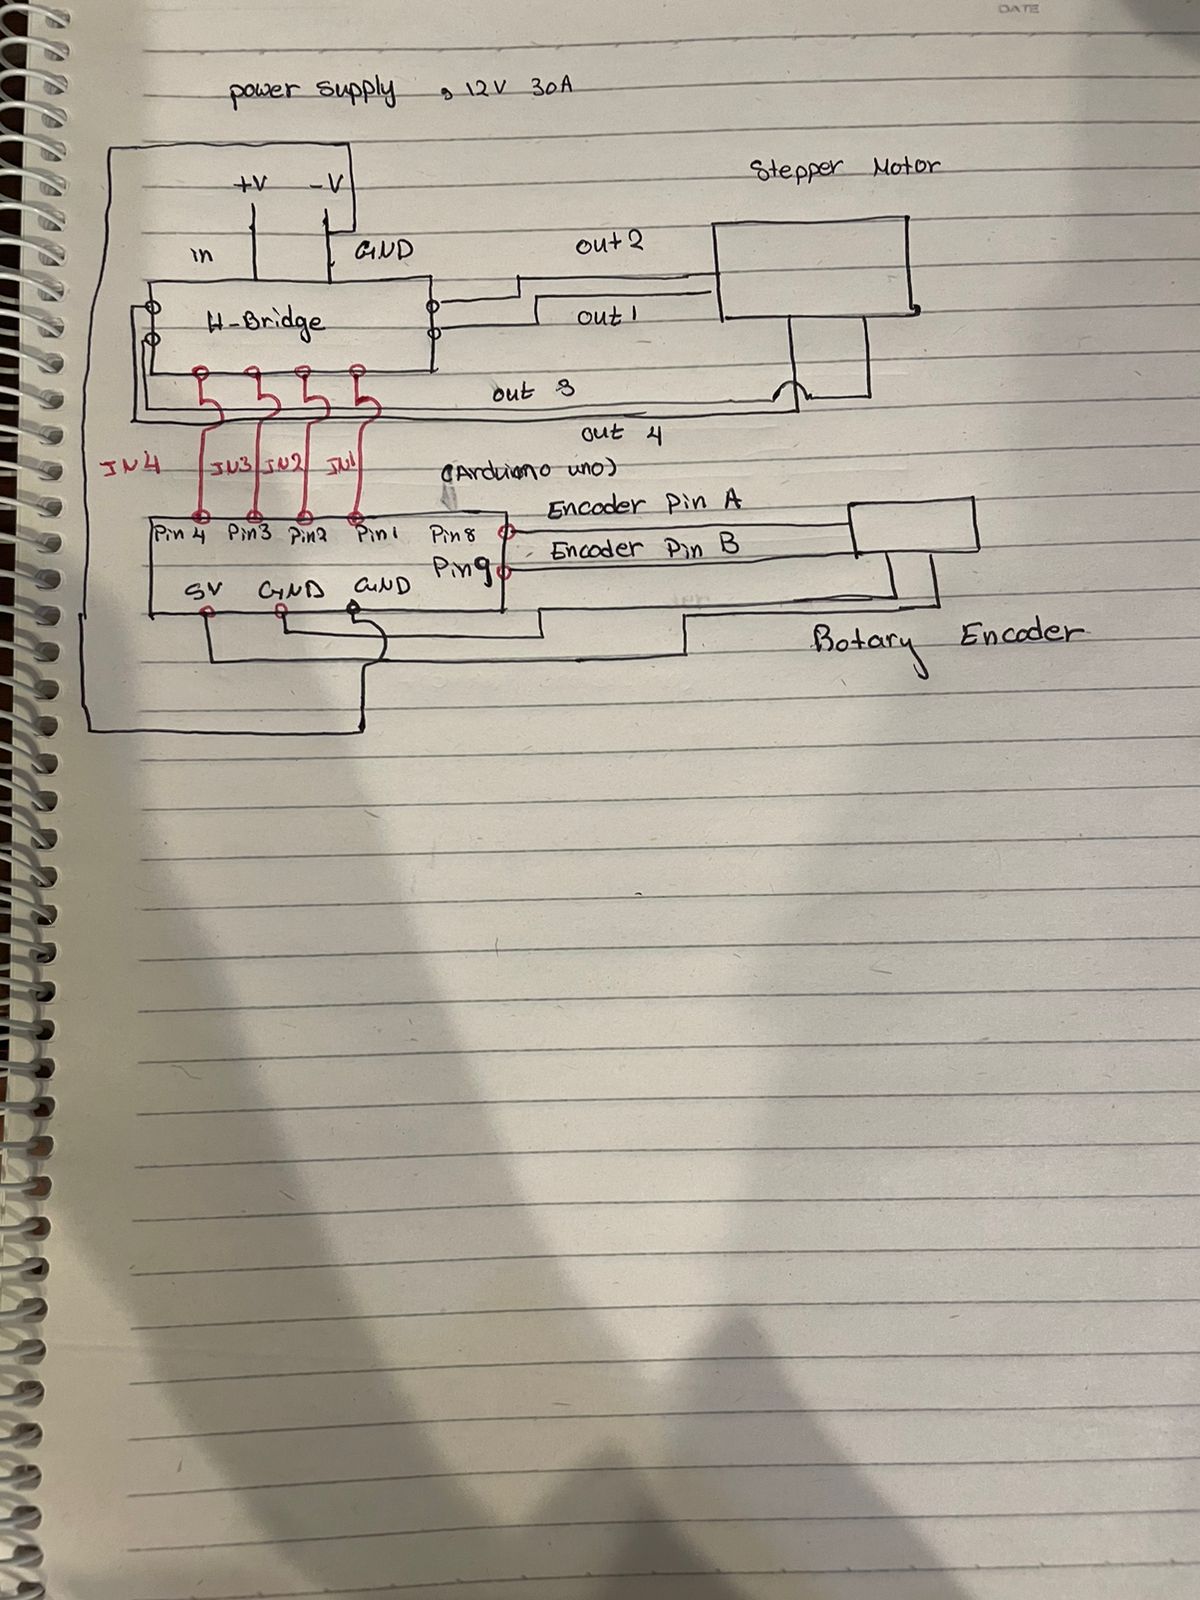 DATE
power supply , 12V 30A
Stepper Motor
+V -V
in GND
out 2
H-Bridge
out 1
out 3
out 4
IN4 IN3 IN2 IN1
(Arduino uno)
Encoder Pin A
Pin 4 Pin3 Pin2 Pin1 Pin8
Encoder Pin B
Pin9
5V GND GND
Rotary Encoder